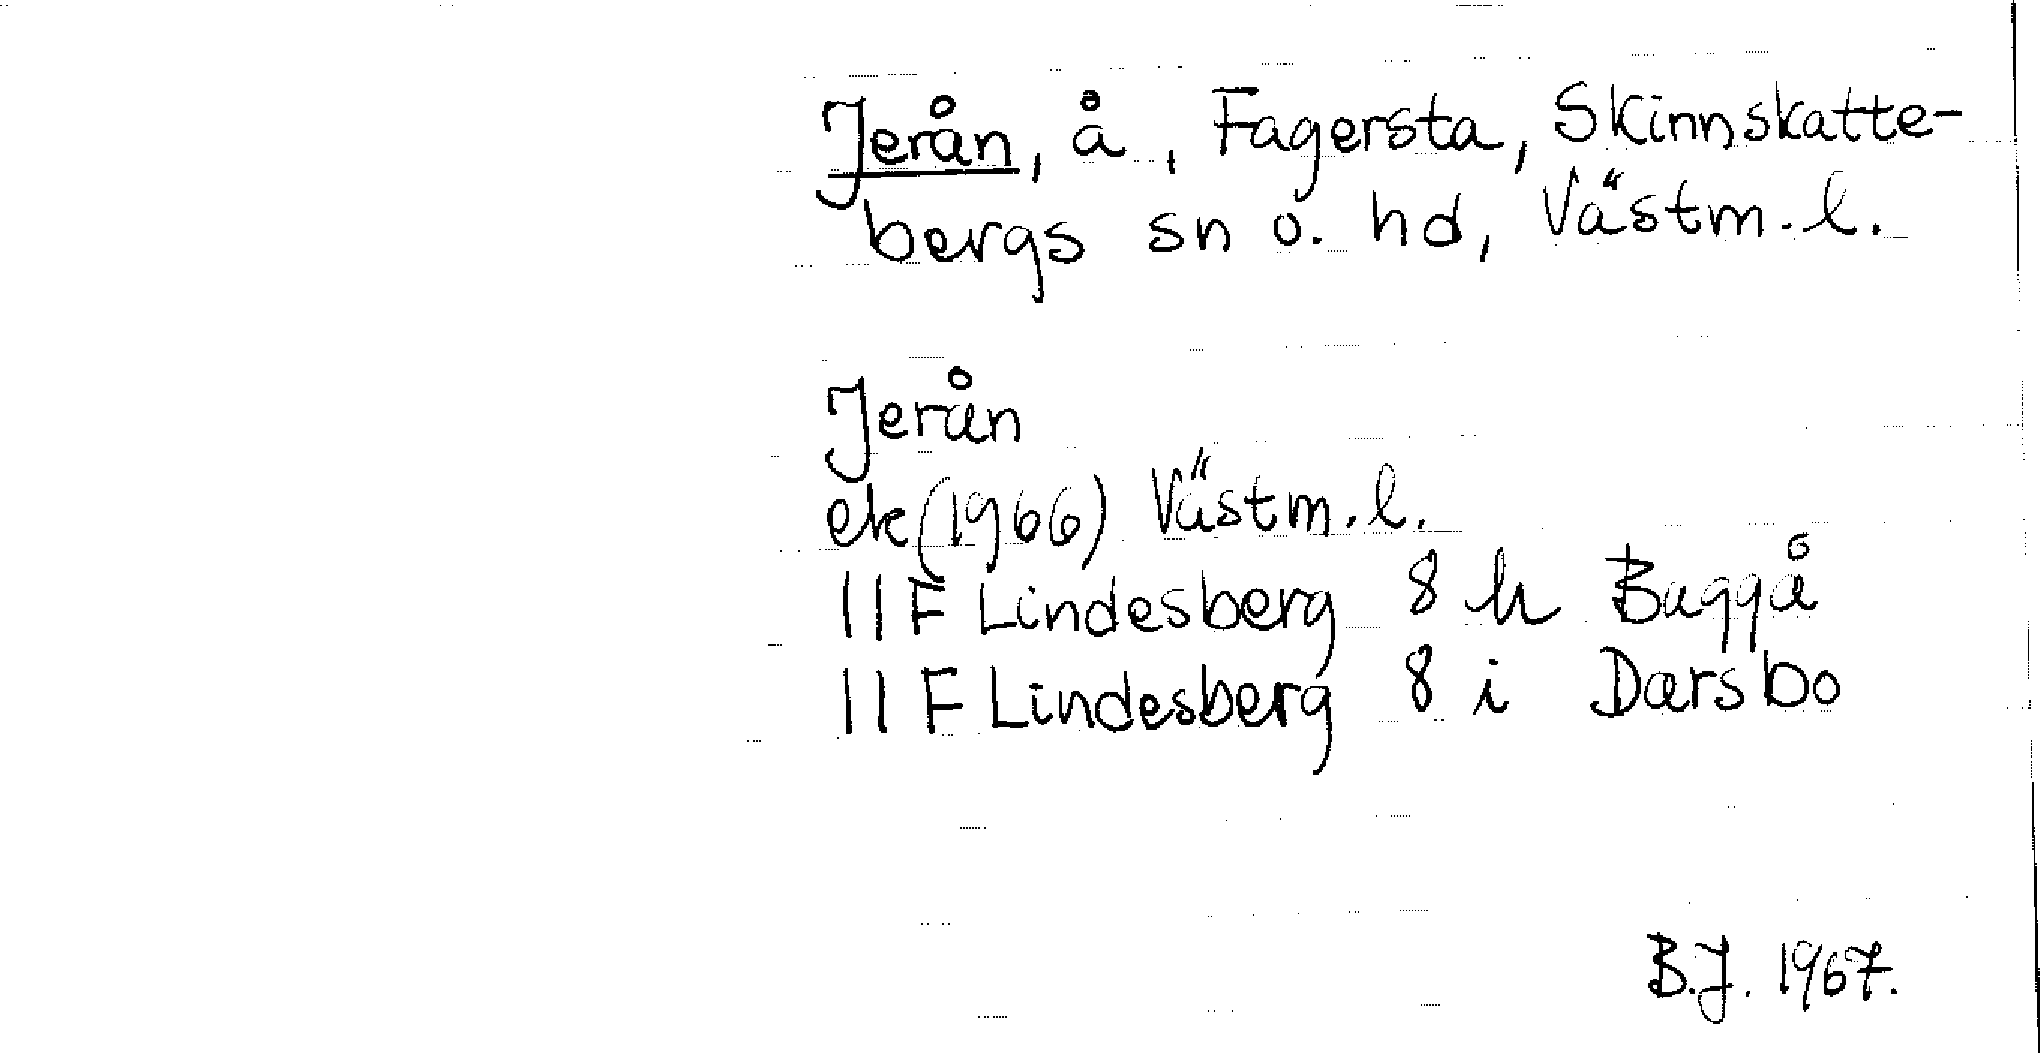 Jerån, å, Fagersta, Skinnskatte-
bergs sn o. hd, Västm. l.
Jerån
ek (1966) Västm. l.
11 F Lindesberg 8 h Baggå
11 F Lindesberg 8 i Darsbo
B.J. 1967.